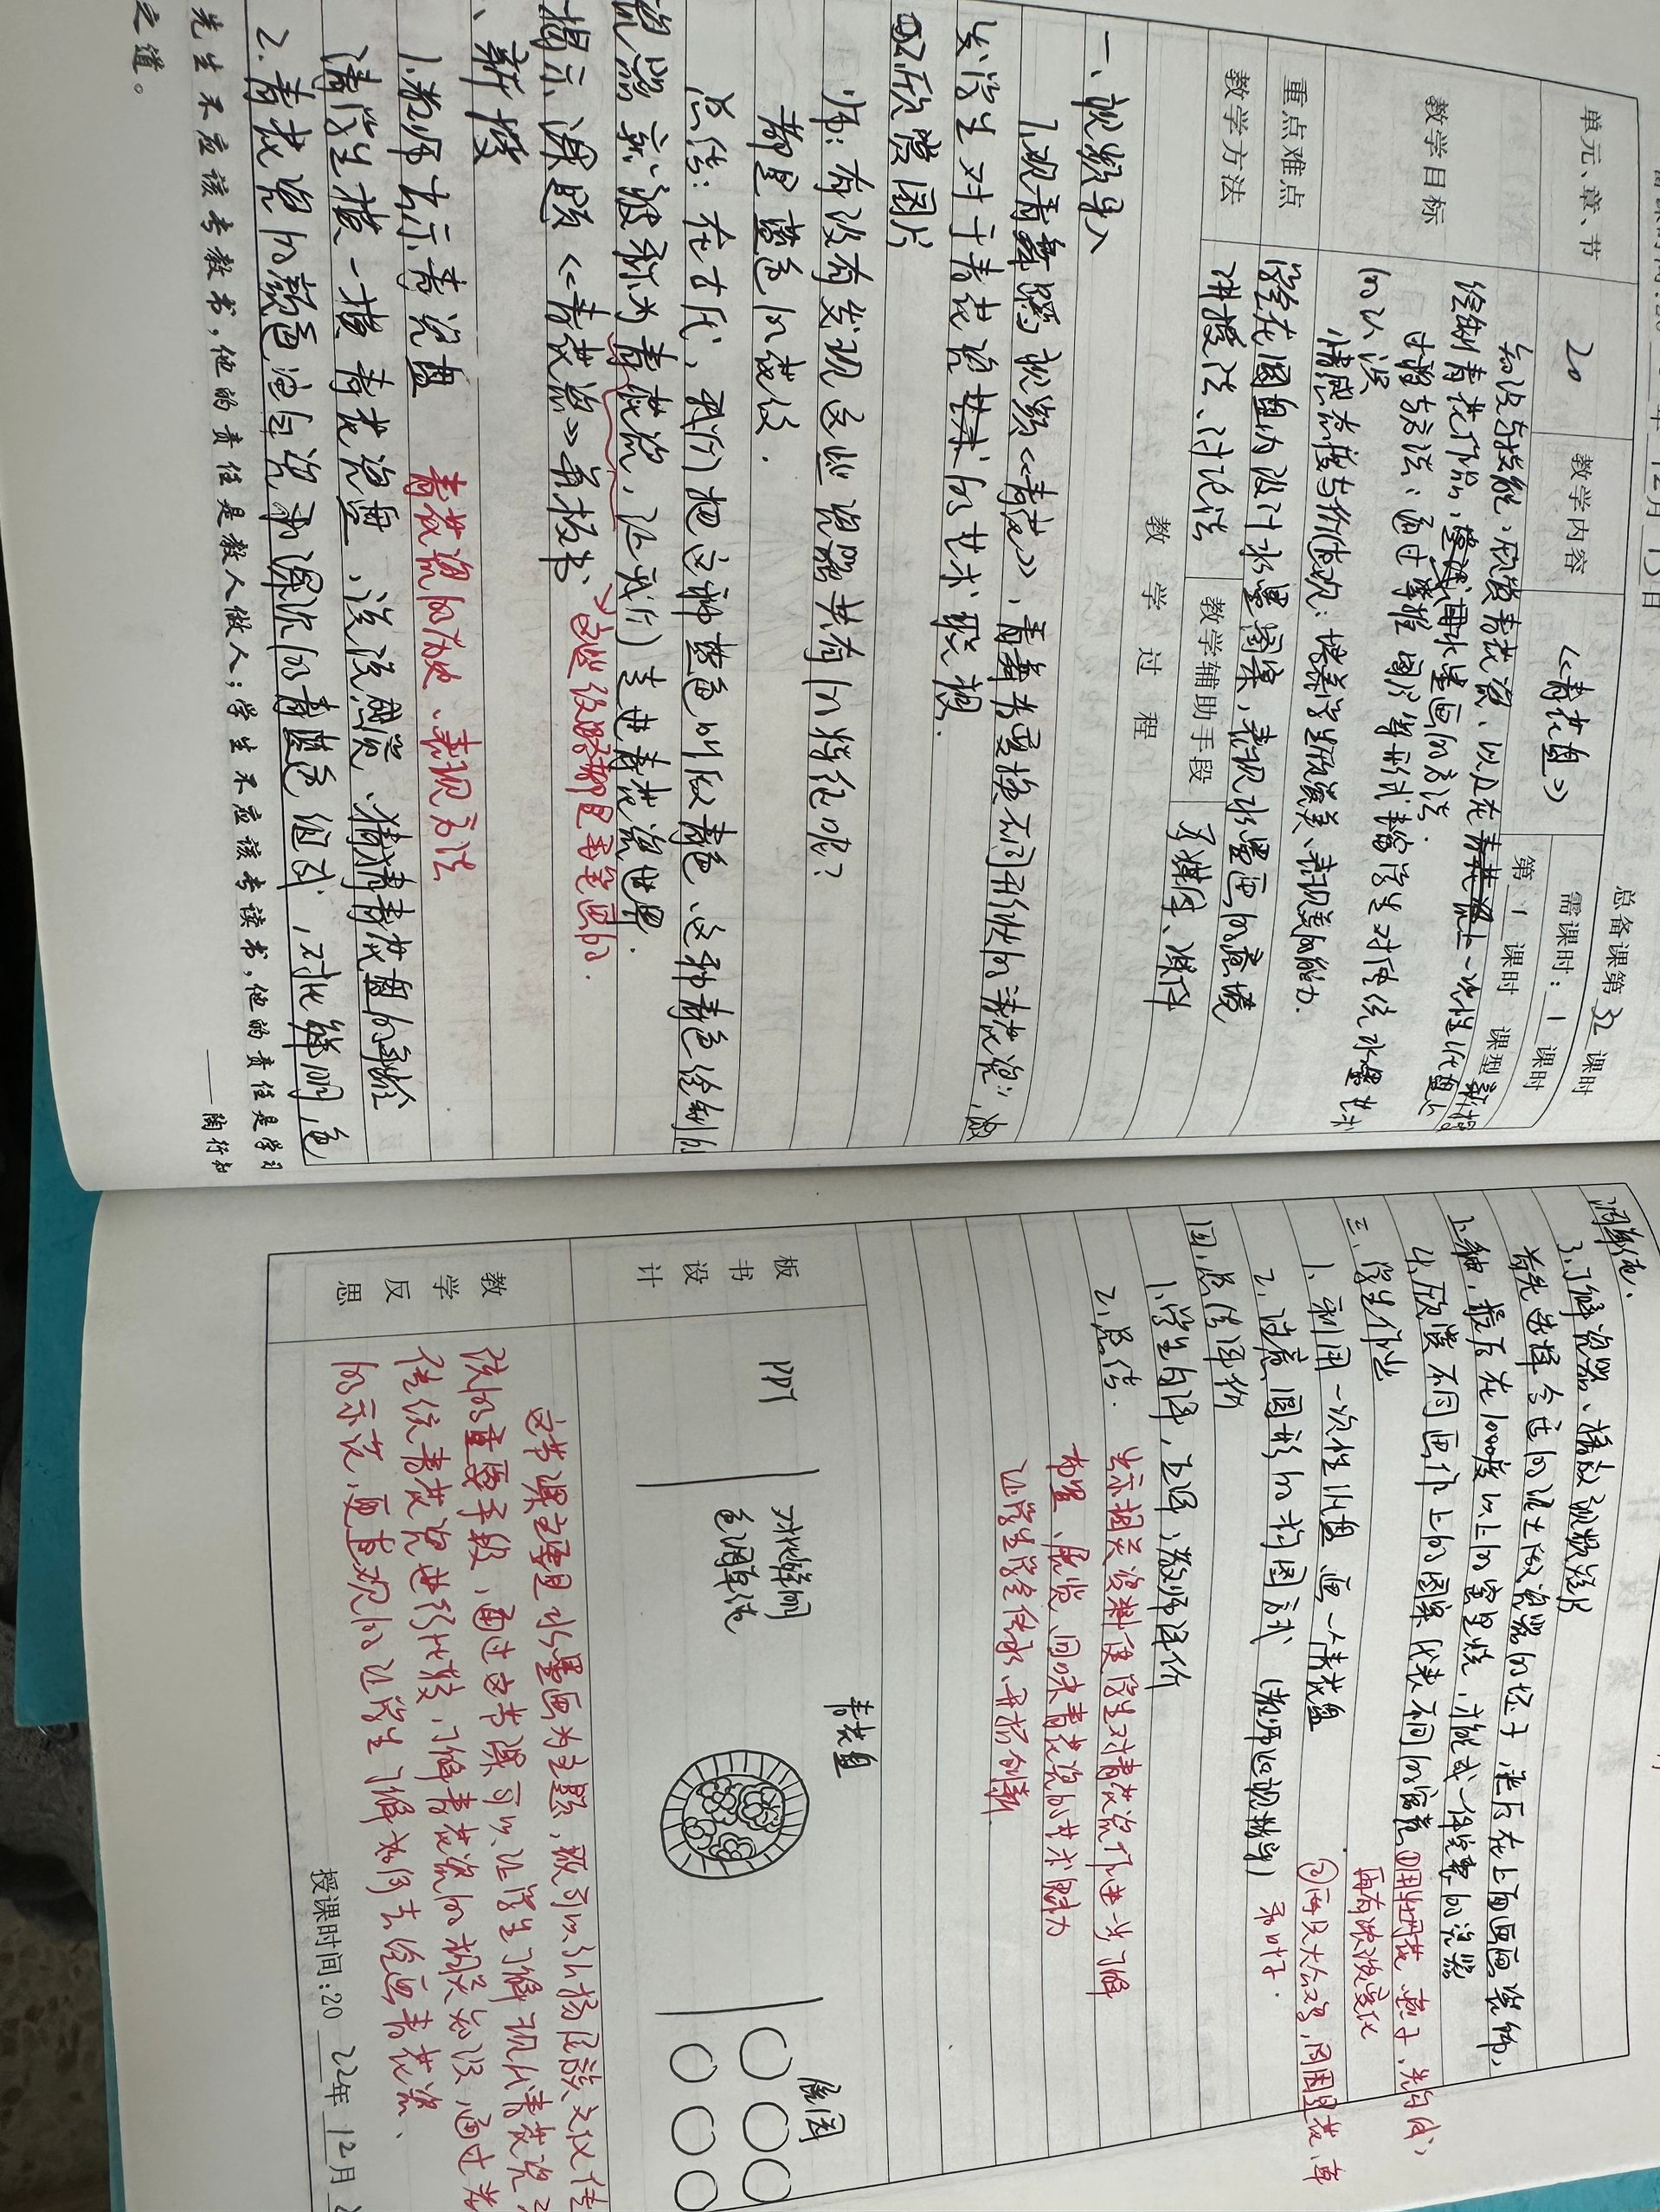 备课时间:20 年 12月 13日
总备课第 32 课时
单元、章、节 20 教学内容 《青花盘》 需课时: 1 课时
第 1 课时 课型 新授
教学目标
知识与技能:欣赏青花瓷、以及在青花瓷上一次性纸盘上
绘制青花作品,尝试用水墨画的方法.
过程与方法:通过 图片等形式丰富学生对传统水墨艺术
的认识
情感态度与价值观:培养学生欣赏美、表现美的能力.
重点难点 学会在圆盘内设计水墨图案,表现水墨画的意境
教学方法 讲授法、讨论法 教学辅助手段 多媒体、课件
教 学 过 程
一、视频导入
1.观青舞蹈视频《青花》,青舞者变换不同形状的“青花瓷”,激
发学生对于青花瓷艺术的艺术联想.
2.欣赏图片
师:有没有发现这些瓷器共有的特征呢?
都是蓝色的花纹.
总结:在古代,我们把这种蓝色叫做青色、这种青色绘制的
瓷器就被称为青花瓷,让我们走进青花瓷世界.
这些纹路都是毛笔画的.
揭示课题《青花瓷》并板书
、新授
1.教师出示青瓷盘 青花瓷的历史、表现方法
请学生摸一摸青花瓷盘,说说感觉、猜猜青花盘的年龄
2.青花瓷的颜色由白瓷和深沉的青蓝色组成,对比鲜明,色
先生不应该专教书,他的责任是教人做人;学生不应该专读书,他的责任是学习
——陶行知
之道。
调单纯.
3.了解瓷器、播放视频短片
首先选择合适的泥土做瓷器的坯子,然后在上面画画装饰,
上釉,最后在1000度以上的窑里烧,才能成一件完整的瓷器
4.欣赏不同画作上的图案代表不同的寓意 ①用牡丹花、燕子、先勾线,
再有浓淡变化
三、学生作业
1.利用一次性纸盘、画一个青花盘
②两只大公鸡,周围是花、草
和叶子.
2.注意圆形的构图方式(教师巡视指导)
四、总结评价
1.学生自评,互评,教师评价
2.总结. 出示相关资料使学生对青花瓷作进一步了解
布置、展览、回味青花瓷的艺术魅力
让学生学会传承、开拓创新.
板书设计
青花盘
PPT
对比鲜明
色调单纯
展园
教学反思
这节课主要是水墨画为主题,既可以弘扬民族文化传
统的重要手段,通过这节课可以让学生了解现代青花瓷
传统青花瓷进行比较,了解青花瓷的相关知识,通过老
的示范,更直观的让学生了解如何去绘画青花瓷.
授课时间:20 22年 12月